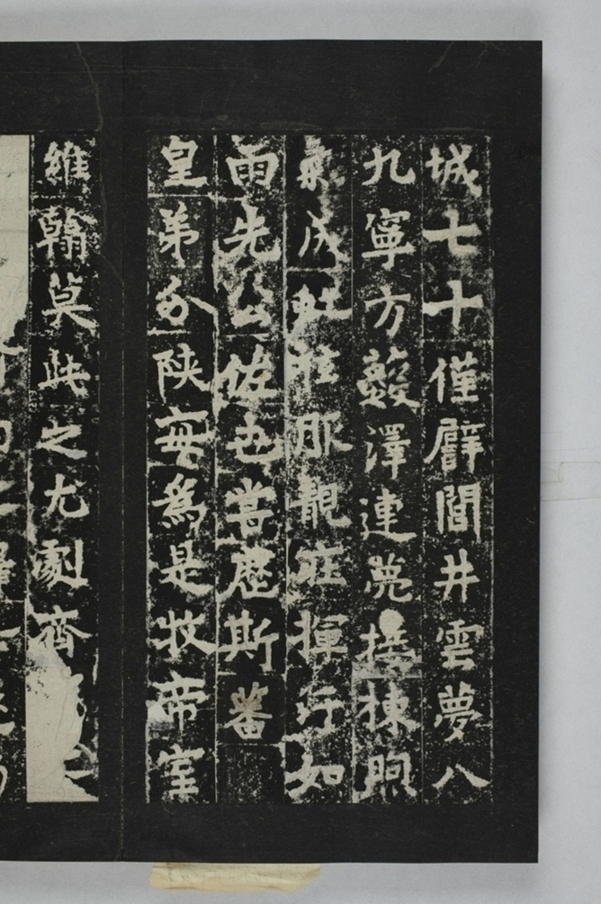 城七十僅廦閭井雲夢八
九寧方藪澤連甍接棟煦
氣成虹服靚莊揮汗如
雨先公佐也嘗歷斯蕃
皇弟分陝每為是牧帝室
維翰莫此之尤劇齊